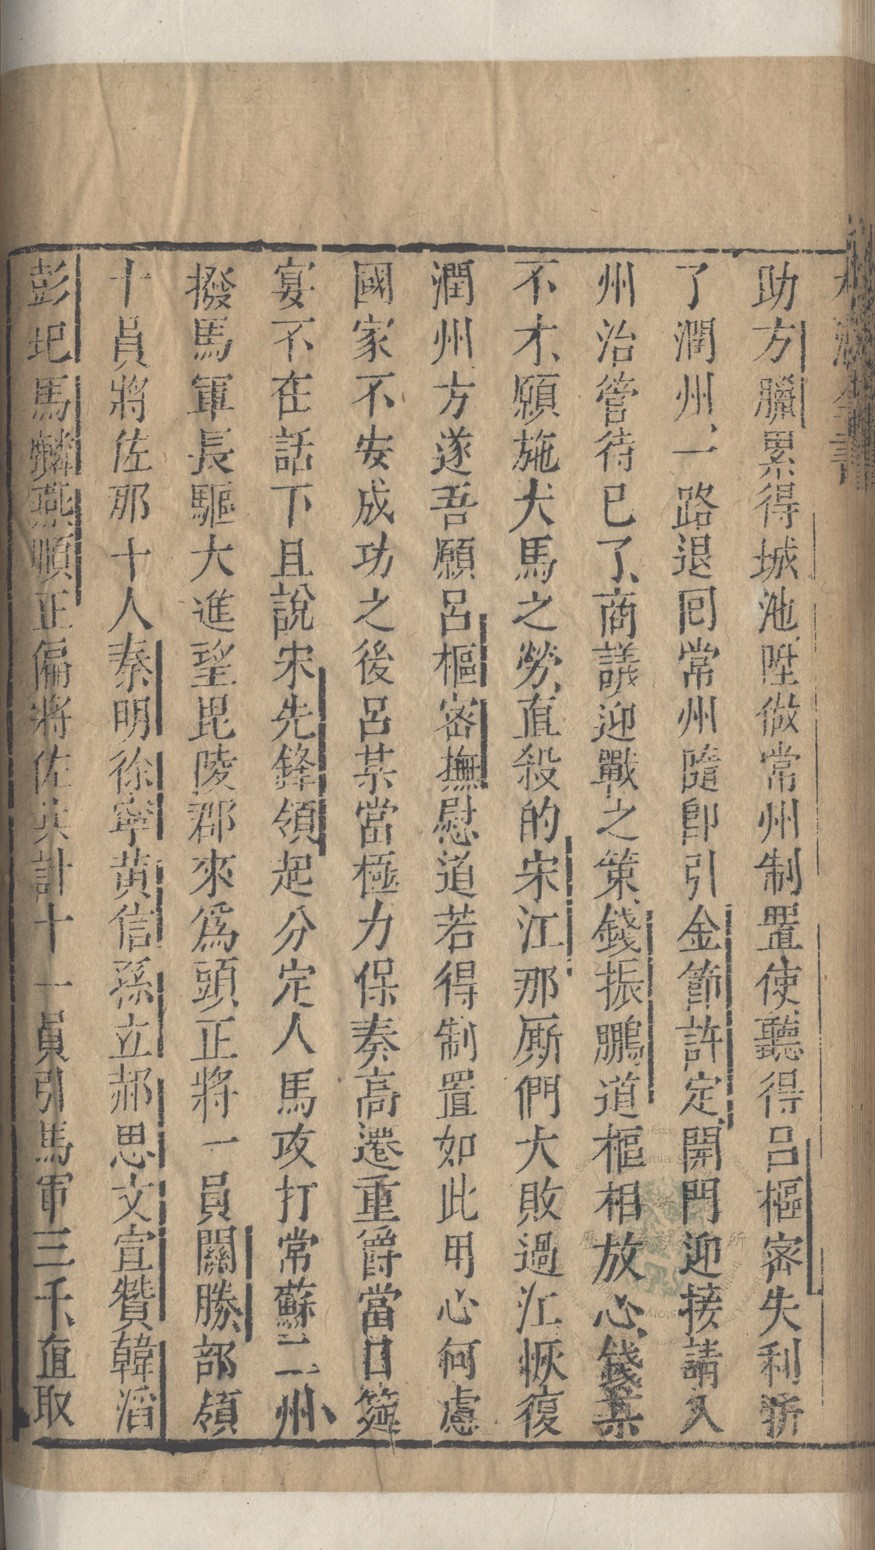 助方臘累得城池陞做常州制置使聽得呂樞密失利折
了潤州一路退回常州隨即引金節許定開門迎接請入
州治管待已了商議迎戰之策錢振鵬道樞相放心錢某
不才願施犬馬之勞直殺的宋江那厮們大敗過江恢復
潤州方遂吾願呂樞密撫慰道若得制置如此用心何慮
國家不安成功之後呂某當極力保奏高遷重爵當日筵
宴不在話下且說宋先鋒領起分定人馬攻打常蘇二州
撥馬軍長驅大進望毘陵郡來爲頭正將一員關勝部領
十員將佐那十人秦明徐寧黄信孫立郝思文宣贊韓滔
彭玘馬麟燕順正偏將佐共計十一員引馬軍三千直取